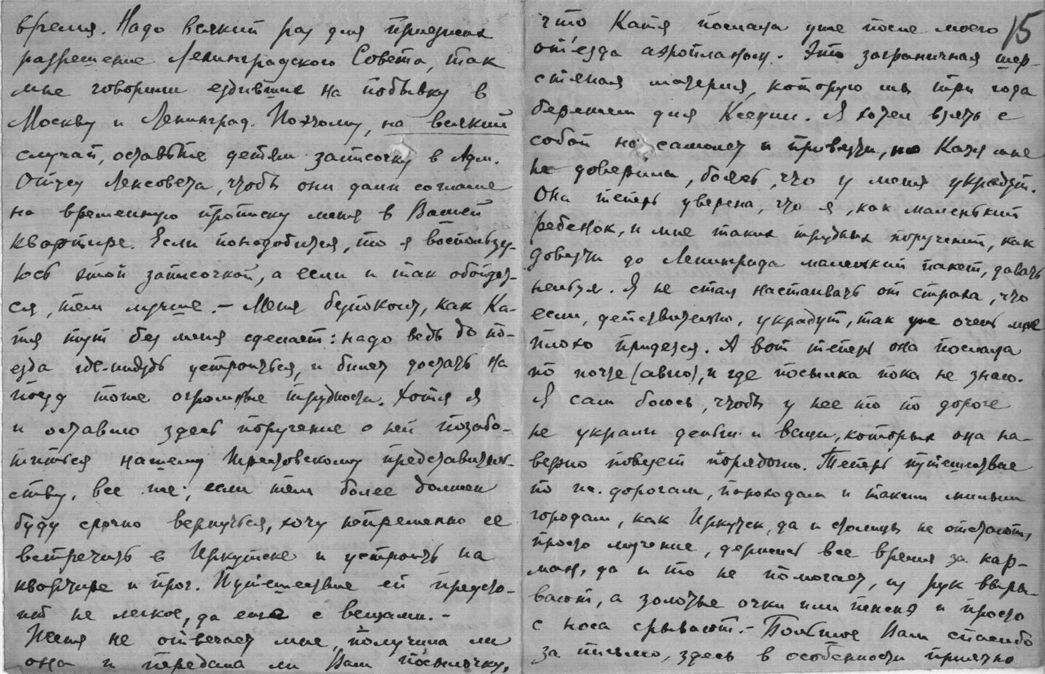 время. Надо всякий раз для приезжих
разрешение Ленинградского Совета, так
мне говорили ездившие на побывку в
Москву и Ленинград. Поэтому, на всякий
случай, оставьте детям записочку в Адм.
Отдел Ленсовета, чтобы они дали согласие
на временную прописку меня в Вашей
квартире. Если понадобится, то я воспользу-
юсь этой запиcочкой, а если и так обойдет-
ся, тем лучше. – Меня беспокоит, как Ка-
тя тут без меня сделает: надо ведь до по-
езда где-нибудь устроиться, и билет достать на
поезд тоже огромные трудности. Хотя я
и оставлю здесь поручение о ней позабо-
титься нашему представитель-
ству, все же, если тем более должен
буду срочно вернуться, хочу непременно ее
встретить в Иркутске и устроить на
квартире и проч. Путешествие ей предсто-
ит не легкое, да еще с вещами.
не отвечает мне, получила ли
она и передала ли Вам посылочку,
15
что Катя послала уже после моего
от'езда аэропланом. Это заграничная шер-
стяная материя, которую мы три года
бережем для Ксении. Я хотел взять с
собой на самолет и привезти, но Катя мне
не доверила, боясь, что у меня украдут.
Она теперь уверена, что я, как маленький
ребенок, и мне таких трудных поручений, как
довезти до Ленинграда маленький пакет, давать
нельзя. Я не стал настаивать от страха, что
если, действительно, украдут, так уже очень мне
плохо придется. А вот теперь она послала
по почте (авио), и где посылка пока не знаю.
Я сам боюсь, чтобы у нее то по дороге
не украли деньги и вещи, которых она на-
верно повезет порядочно. Теперь путешествие
по ж. дорогам, пароходам и таким милым
городам, как Иркутск, да и столицы не отстают,
просто мучение, держись все время за кар-
ман, да и то не помогает, из рук выры-
вают, а золотые очки или пенснэ и просто
с носа срывают. – Большое Вам спасибо
за письмо, здесь в особенности приятно